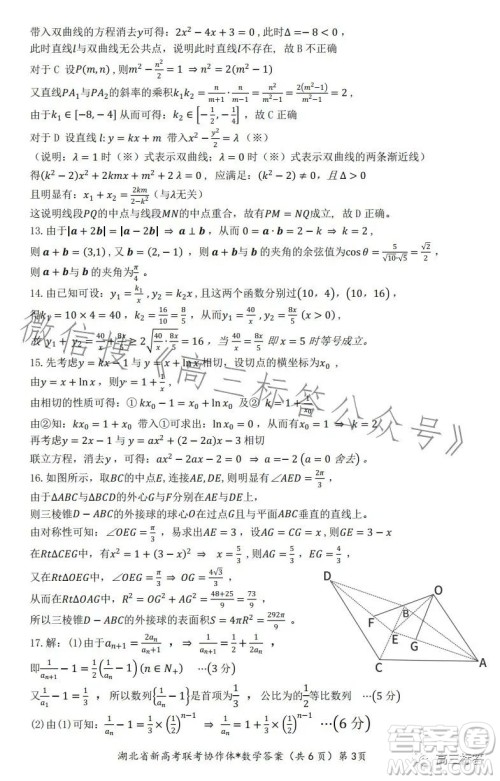 带入双曲线的方程消去y可得：2x²−4x+3=0,此时Δ=−8<0，
此时直线l与双曲线无公共点，说明此时直线l不存在, 故 B 不正确
对于 C 设P(m,n) ,则m²−n²/2=1 ⇒n²=2(m²−1)
又直线PA₁与PA₂的斜率的乘积k₁k₂=n/(m+1)·n/(m−1)=n²/(m²−1)=2(m²−1)/(m²−1)=2，
由于k₁∈[−8,−4] 从而可得: k₂∈[−1/2,−1/4] , 故 C 正确
对于 D 设直线l: y=kx+m 带入x²−y²/2=λ（※）
(说明: λ=1时（※）式表示双曲线, λ=0时（※）式表示双曲线的两条渐近线）
得(k²−2)x²+2kmx+m²+2λ=0, 应满足: Δ>0
且明显有: x₁+x₂=2km/(2−k²) (与λ无关)
这说明线段PQ的中点与线段MN的中点重合，故有PM=NQ成立. 故 D 正确.
13. 由于|a+2b|=|a−2b| ⇒ a⊥b，从而 a·b=0 ⇒ k−2=0 ⇒ k=2，
则a+b=(3,1) , 又b=(2,−1) ，则a+b与b的夹角的余弦值为cosθ=5/(√10·√5)=√2/2，
则a+b与b的夹角为π/4。
14. 由已知可设: y₁=k₁/x , y₂=k₂x , 且这两个函数分别过(10，4)，(10，16)，
得k₁=10×4=40，k₂=16/10=8/5，从而y₁=40/x , y₂=8x/5 (x>0)
故y₁+y₂=40/x+8x/5≥2√(40/x·8x/5)=16，当 40/x=8x/5 即x=5时等号成立.
15. 先考虑y=kx−1与y=x+lnx相切: 设切点的横坐标为x₀，
由y=x+lnx ⇒ y′=1+1/x
由相切的性质可得: ① kx₀−1=x₀+lnx₀ 及② k=1+1/x₀
由②可知: kx₀=x₀+1 带入①可求出: x₀=1, 从而k=2.
再考虑y=2x−1与y=ax²+(2−2a)x−3相切
联立方程, 消去y, 可得: ax²−2ax−2=0 ⇒ a=−2 (a=0 舍去) 。
16. 如图所示, 取BC的中点E, 连接DE、AE, 则明显有∠AED=2π/3，
由于ΔABC与ΔDBC的外心G与F分别位于AE与DE上,
则三棱锥D−ABC的外接球的球心O与G、F位于同一平面且OG与平面ABC垂直.
由对称性可知: ∠OEG=π/3，又易求出AE=3，设CG=AG=x
在RtΔCEG中，有x²=1+(3−x)² ⇒ x=5/3 ⇒ EG=4/3
又在RtΔOEG中，∠OEG=π/3 ⇒ OG=4√3/3，
在RtΔOGA中，R²=OG²+AG²=(48+25)/9=73/9，
所以三棱锥D−ABC的外接球的表面积S=4πR²=292π/9 .
17. 解: (1)由于aₙ₊₁=2aₙ/(aₙ+1) ， ⇒ 1/aₙ₊₁=1/2+1/2·1/aₙ，
即1/aₙ₊₁−1=1/2(1/aₙ−1)(n∈N₊) …(3 分)
又1/a₁−1=1/3，所以数列{1/aₙ−1}是首项为1/3，公比为1/2的等比数列. …(5 分)
(2)由(1)可知，1/aₙ−1=1/3·(1/2)ⁿ⁻¹ ⇒ 1/aₙ=1+1/3·(1/2)ⁿ⁻¹ …(6 分)
D
O
F
B
E
G
C
A
微信搜《高三标答公众号》
湖北省新高考联考协作体*数学答案（共 6 页）第 3页
高三标答